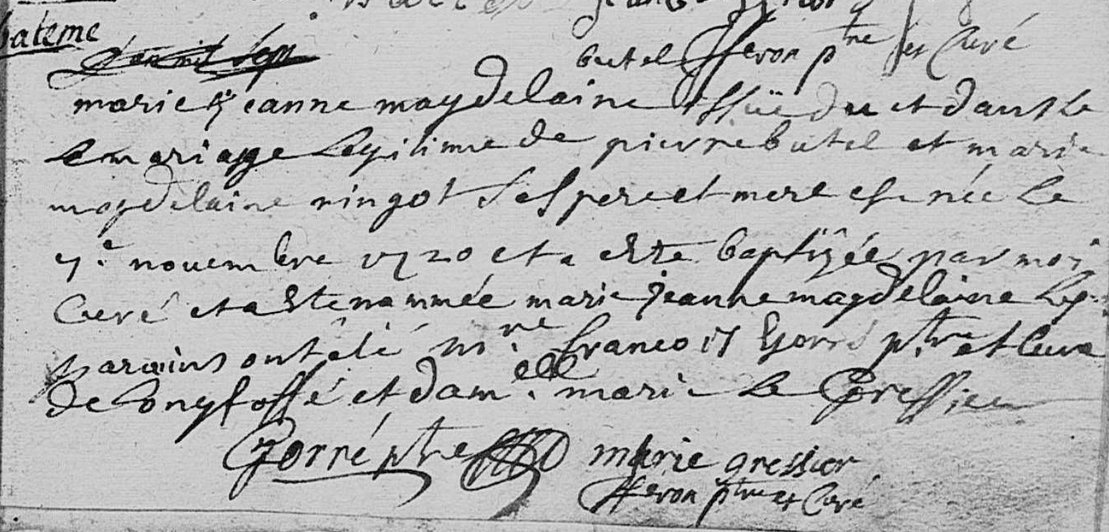 bateme
butel fferon ptre et Curé
marie jeanne magdelaine issüe du et dans Le
Le mariage Legitime de pierre butel et marie
magdelaine ringot ses pere et mere est née Le
7.e novembre 1720 et a esté baptizée par moi
Curé et a esté nommée marie jeanne magdelaine Les
parains ont été m.re francois Gorré ptre et Curé
de Longfossé et dam.elle marie Le Gressier
Gorré ptre marie gressier
fferon ptre et Curé